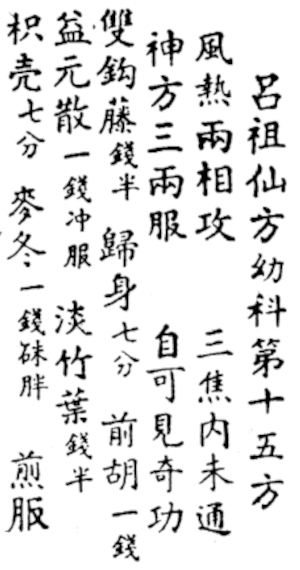 呂祖仙方幼科第十五方
風熱兩相攻 三焦內未通
神方三兩服 自可見奇功
雙鈎藤錢半 歸身七分 前胡一錢
益元散一錢冲服 淡竹葉錢半
枳壳七分 麥冬一錢硃胖 煎服